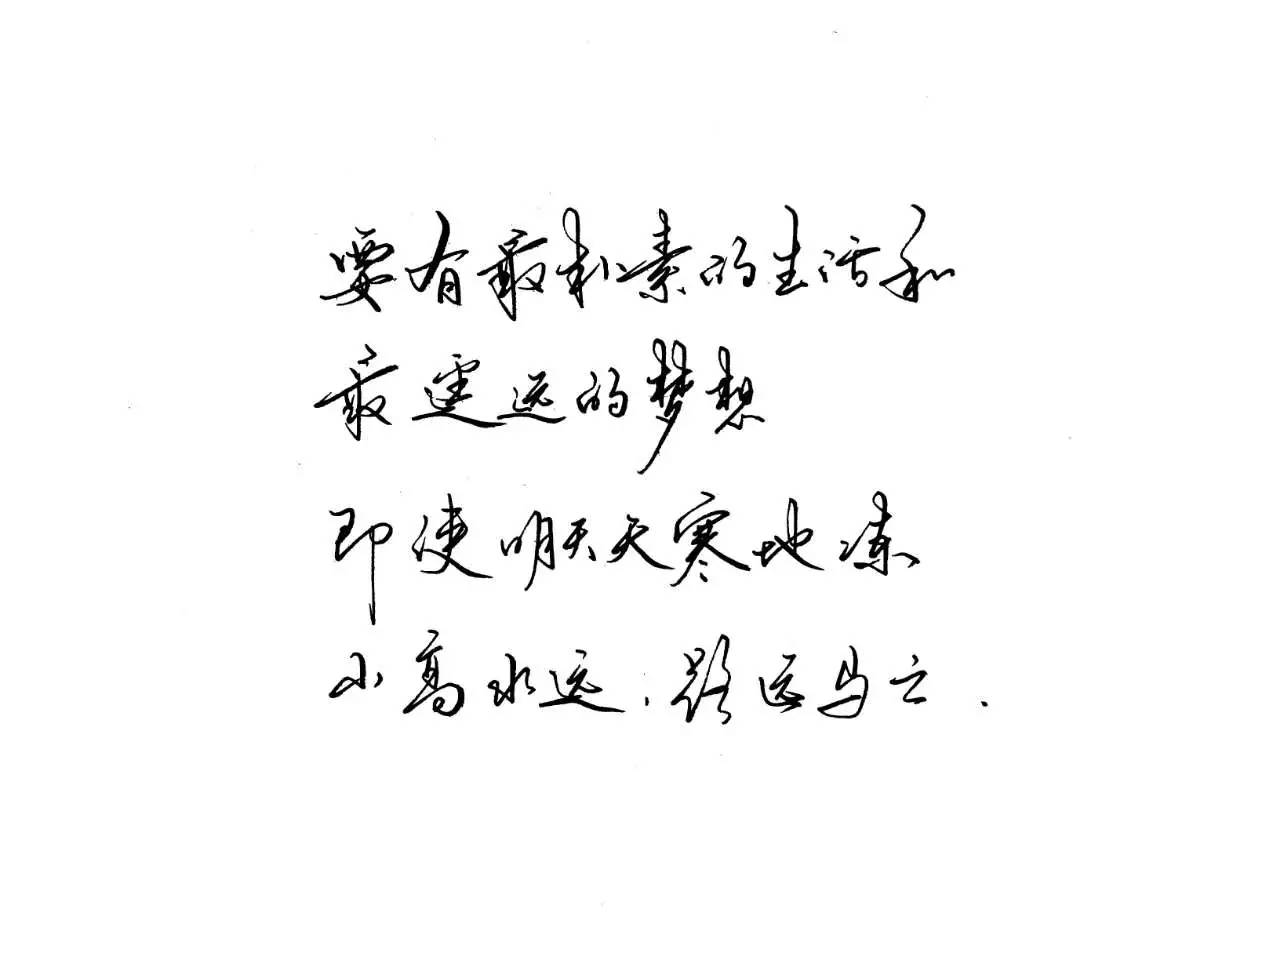 要有最朴素的生活和
最遥远的梦想
即使明天天寒地冻
山高水远，路远马亡．